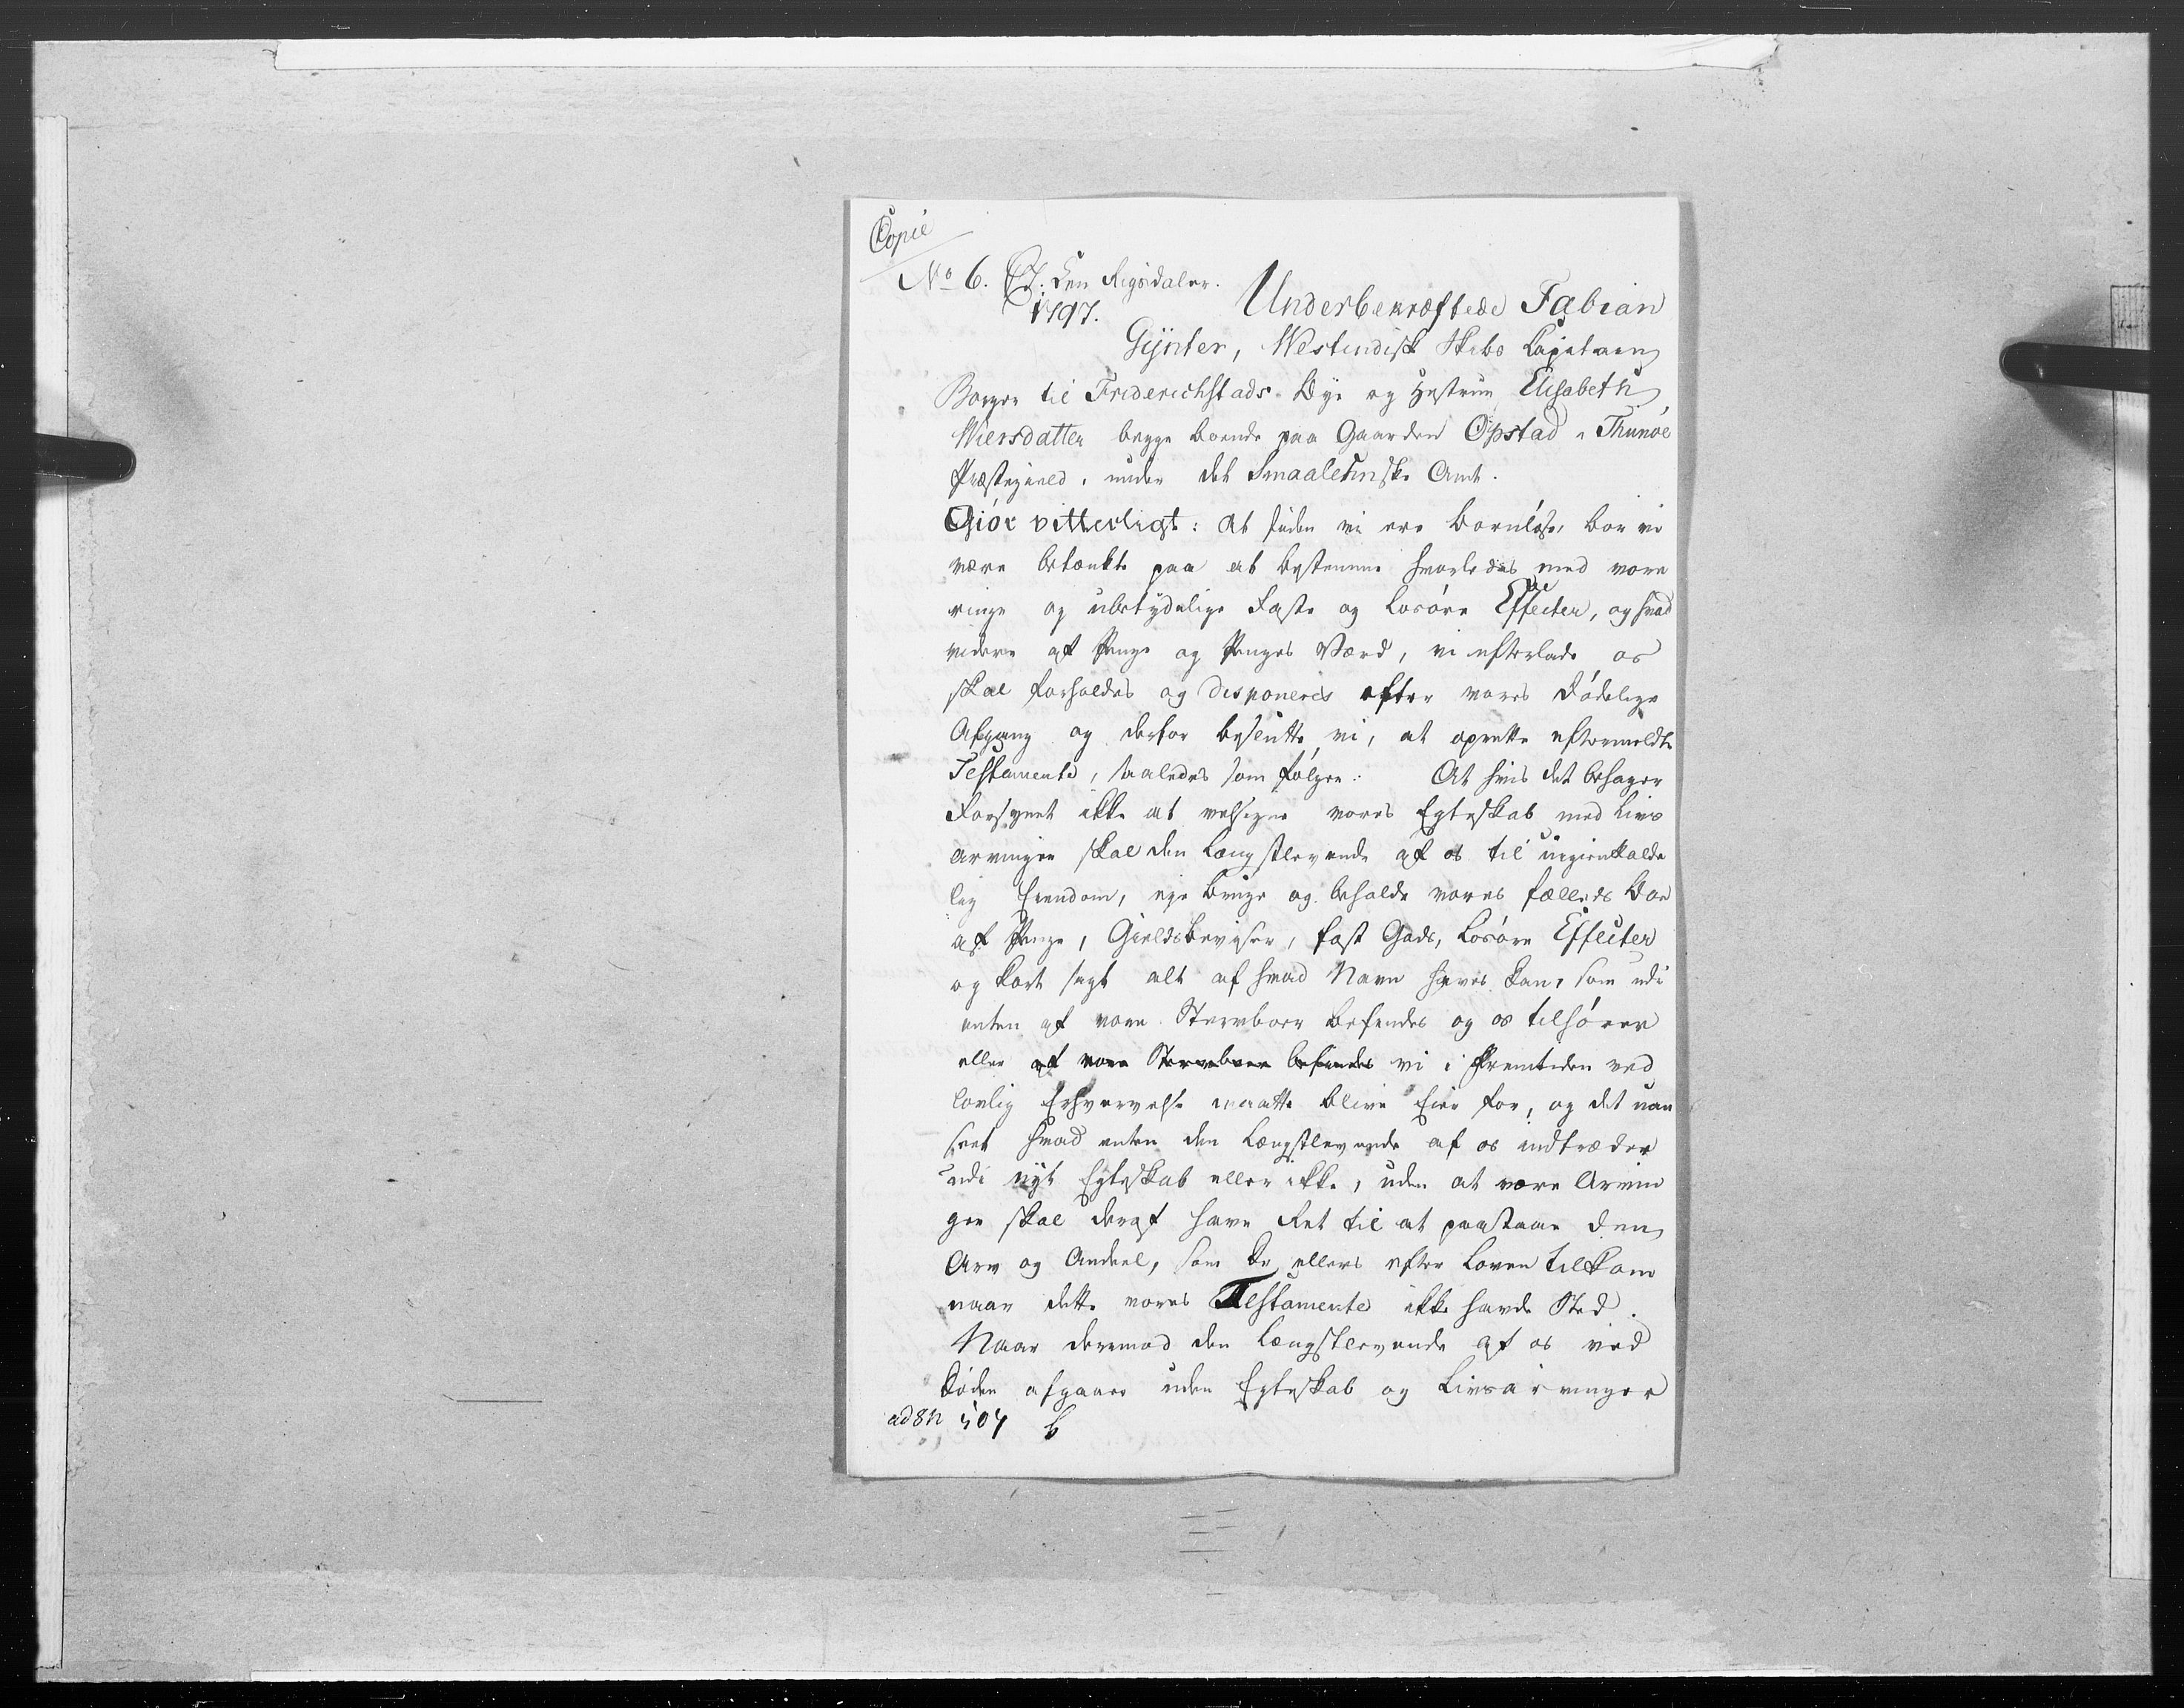 Copie
No 6. C7. Een Rigsdaler.
1797.
Underbekræftede Fabian
Gÿnter, Westindisk Skibs Capitaen
Borger til Friderichstads Bye og Hustrue Elisabeth
Niersdatter begge boende paa Gaarden Opstad i Thunøe
Præstegield, under det Smaalehnske Amt.
Giör vitterligt: At siden vi ere barnløse, bør vi
være betænkte paa at bestemme hvorledes med vore
ringe og ubetydelige Faste og Losöre Effecter, og hvad
videre af Penge og Penges Værd, vi efterlade os
skal forholdes og disponeres efter vores dödelige
Afgang og derfor besluttet vi, at oprette eftermeldte
Testamente, saaledes som fölger: At hvis det behager
Forsynet ikke at velsigne vores Egteskab med Livs
arvinger skal den Længstlevende af os til uigienkalde
lig Eiendom, eje bruge og beholde vores fælleds Boe
af Penge, Gieldsbeviser, fast Gods, Losöre Effecter
og kort sagt alt af hvad Navn haves kan, som udi
enten af vore Stervboer befindes og os tilhörer
eller af vore Stervboer befindes vi i Fremtiden ved
lovlig Erhvervelse maatte blive Eier for, og det uan
seet hvad enten den Længstlevende af os indtræder
udi nÿt Egteskab eller ikke, uden at vore Arvin
ger skal deraf have Ret til at paastaae den
Arv og Andeel, som De ellers efter Loven tilkom
naar dette vores Testamente ikke havde Sted.
Naar derimod den Længstlevende af os ved
Döden afgaaer uden Egteskab og Livsarvinger
ad 8n 504 b